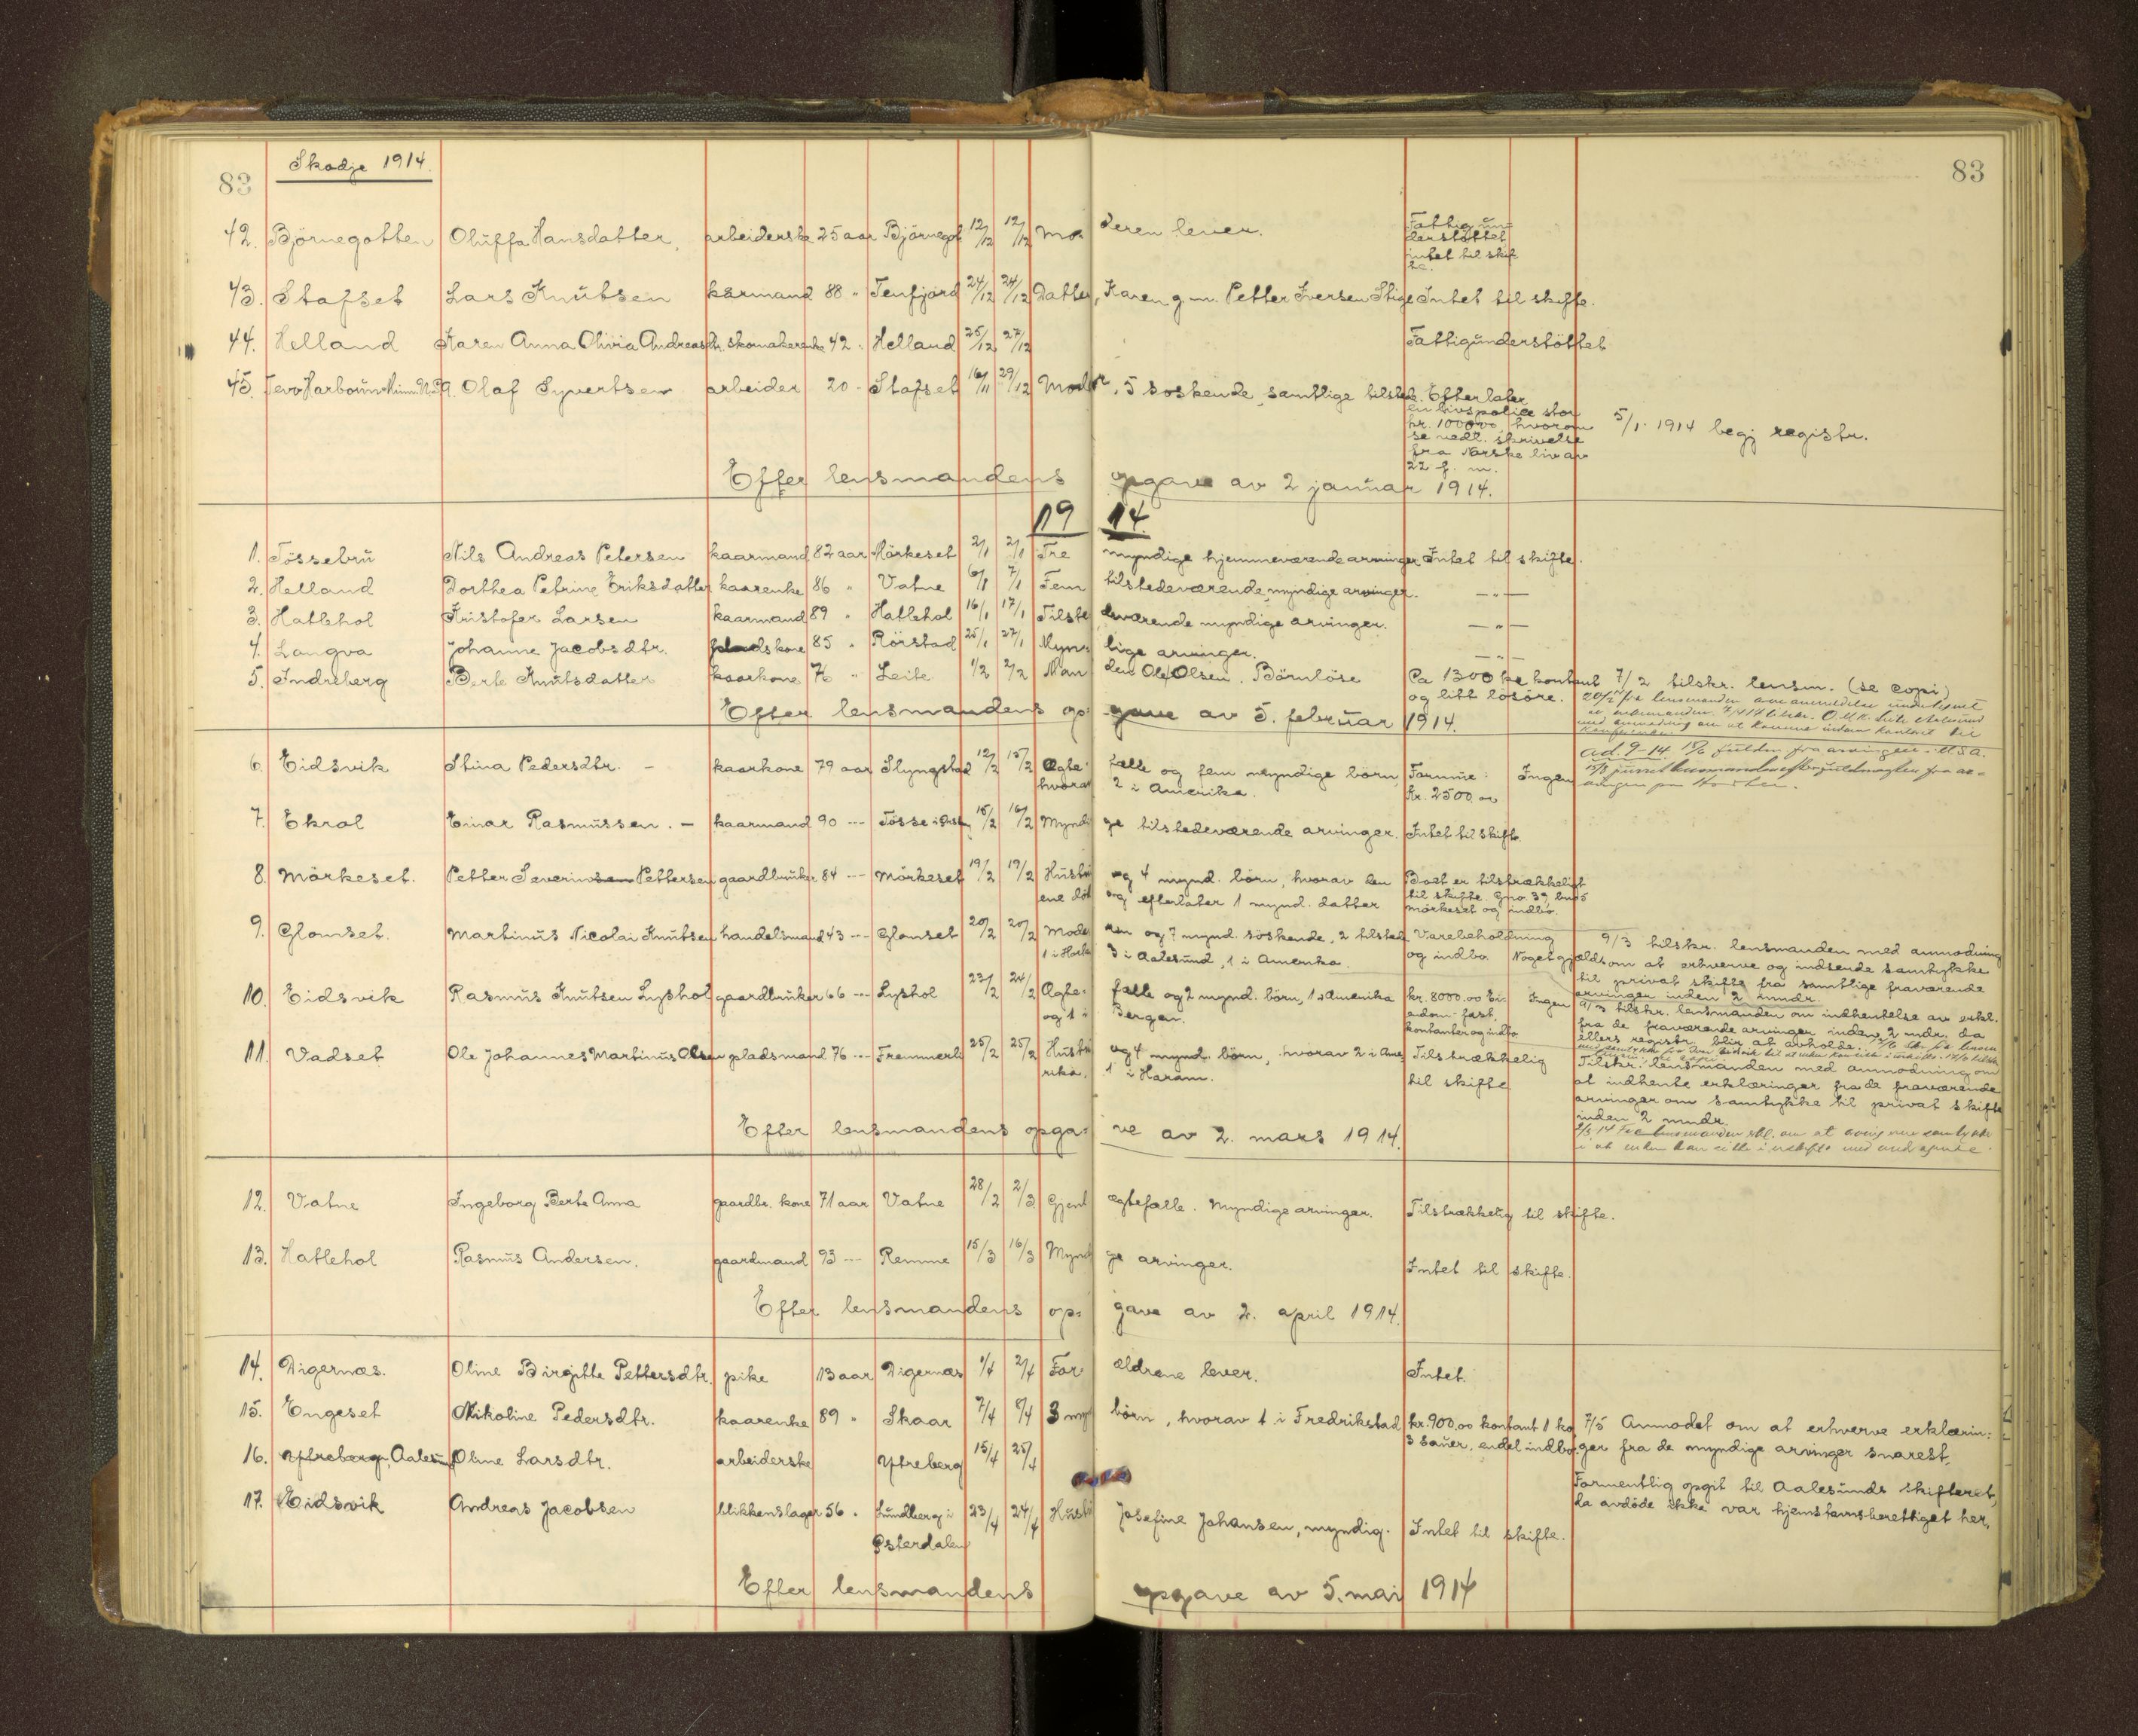 Skodje 1914.
83
83
42. Björnegotten Oluffa Hansdatter, arbeiderske 25 aar Björnegot 12/12 12/12 Moderen lever. Fattigun-
derstöttet
intet til skif
te.
43. Stafset Lars Knutsen kårmand 88 " Tenfjord 24/12 24/12 Datter, Karen g.m. Petter Iversen Stige Intet til skifte.
44. Helland Karen Anna Olivia Andreasdtr. skomakerenke 42 " Helland 25/12 27/12 Fattigunderstöttet
45. Olaf Syvertsen arbeider 20 - Stafset 16/11 29/12 Moder, 5 söskende, samtlige tilstede. Efterlater
en livspolice stor
kr. 1000.00 hvorom
se vedl. skrivelse
fra Norske liv av
22 f. m.
5/1 1914 begj registr.
Efter lensmandens opgave av 2 januar 1914.
1914
1. Tössebru Nils Andreas Petersen kaarmand 82 aar Mörkeset 2/1 2/1 Tre myndige hjemmeværende arvinger Intet til skifte.
2. Helland Dorthea Petrine Eriksdatter kaarenke 86 " Vatne 6/1 7/1 Fem tilstedeværende myndige arvinger. — " —
3. Hatlehol Kristofer Larsen kaarmand 89 " Hatlehol 16/1 17/1 Tilstedeværende myndige arvinger. — " —
4. Langva Johanne Jacobsdtr. pladskone 85 " Rörstad 25/1 27/1 Myndige arvinger. — " —
5. Indreberg Berte Knutsdatter kaarkone 76 " Leite 1/2 2/2 Manden Ole Olsen. Börnlöse Ca 1300 kr kontant
og litt lösöre.
7/2 tilskr. lensm. (se copi)
Efter lensmandens opgave av 5. februar 1914.
6. Eidsvik Stina Pedersdtr. - kaarkone 79 aar Slyngstad 12/2 15/2 Ægtefælle og fem myndige börn, Formue: Ingen
hvorav 2 i Amerika. Kr. 2500.00
ad. 9-14 15/6 fuldm. fra arvingen i U.S.A.
7. Ekrol Einar Rasmussen. - kaarmand 90 --- Tösse i Örsk 15/2 16/2 Myndige tilstedeværende arvinger. Intet til skifte
8. Mörkeset. Petter Severinsen Pettersen gaardbruker 84 --- Mörkeset 19/2 19/2 Hustru og 4 mynd. börn, hvorav den Boet er tilstrækkeligt
ene död og efterlater 1 mynd. datter til skifte. Gno 39, bno 5
Mörkeset og indbo.
9. Glomset. Martinus Nicolai Knutsen handelsmand 43 --- Glomset 20/2 20/2 Moderen og 7 mynd. söskende, 2 tilstede Varebeholdning
1 i Horten 3 i Aalesund, 1 i Amerika. og indbo. Noget gjæld
9/3 tilskr. lensmanden med anmodning
om at erhverve og indsende samtykke
til privat skifte fra samtlige fraværende
arvinger inden 2 mndr.
10. Eidsvik Rasmus Knutsen Lyshol gaardbruker 66 --- Lyshol 23/2 24/2 Ægtefælle og 2 mynd. börn, 1 i Amerika kr. 8000.00 Ei- Ingen
og 1 i Bergen. endom-fast,
kontanter og indbo
9/3 tilskr. lensmanden om indhentelse av erkl.
fra de fraværende arvinger inden 2 mdr. da
ellers registr. blir at avholde.
11. Vadset Ole Johannes Martinus Olsen pladsmand 76 --- Fremmerli 25/2 25/2 Hustru og 4 mynd. börn, hvorav 2 i Ame Tilstrækkelig
rika. 1 i Haram. til skifte
Tilskr. lensmanden med anmodning om
at indhente erklæringer fra de fraværende
arvinger om samtykke til privat skifte
inden 2 mndr.
Efter lensmandens opgave av 2. mars 1914.
12. Vatne Ingeborg Berte Anna gaardbr. kone 71 aar Vatne 28/2 2/3 Gjenl ægtefælle. Myndige arvinger. Tilstrækkelig til skifte.
13. Hatlehol Rasmus Andersen. gaardmand 93 --- Remme 15/3 16/3 Myndige arvinger. Intet til skifte.
Efter lensmandens opgave av 2. april 1914.
14. Digernæs. Oline Birgitte Pettersdtr. pike 13 aar Digernæs 1/4 2/4 Forældrene lever. Intet.
15. Engeset Nikoline Pedersdtr. kaarenke 89 " Skaar 7/4 8/4 3 mynd börn, hvorav 1 i Fredrikstad kr. 900,00 kontant 1 ko
3 sauer, endel indbo.
7/5 Anmodet om at erhverve erklærin:
ger fra de myndige arvinger snarest.
16. Yttreberg, Aalesund Oline Larsdtr. arbeiderske Yttreberg 15/4 25/4
Formentlig opgit til Aalesunds skifteret,
da avdöde ikke var hjemstavnsberettiget her.
17. Eidsvik Andreas Jacobsen blikkenslager 56 " Lundberg i 23/4 24/4 Hustru Josefine Johansen, myndig. Intet til skifte.
Österdalen
Efter lensmandens opgave av 5. mai 1914